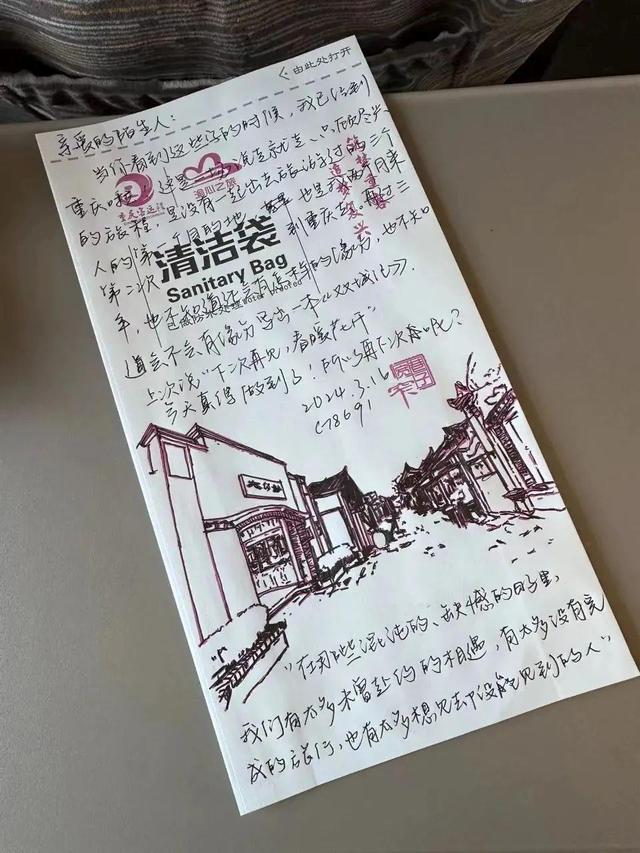 由此处打开
亲爱的陌生人:
当你看到这些字的时候,我已经到
重庆啦!这是一场说走就走、
的旅程,是没有一起出去旅游过的三个
人的第一个目的地,也是我两个月来
第二次到重庆。再过三
年,也不知道还会有怎样的缘分,也不知
道会不会有缘分写出一本《双城记》.
上次说“下次再见,春暖花开”
今天真得做到了!
2024.3.16
C7869
重庆客运段
渝心之旅
清洁袋
Sanitary Bag
“在那些混沌的、缺憾的日子里,
我们有太多未曾赴约的相遇,有太多没有完
成的旅行,也有太多想见去下没能见到的人”